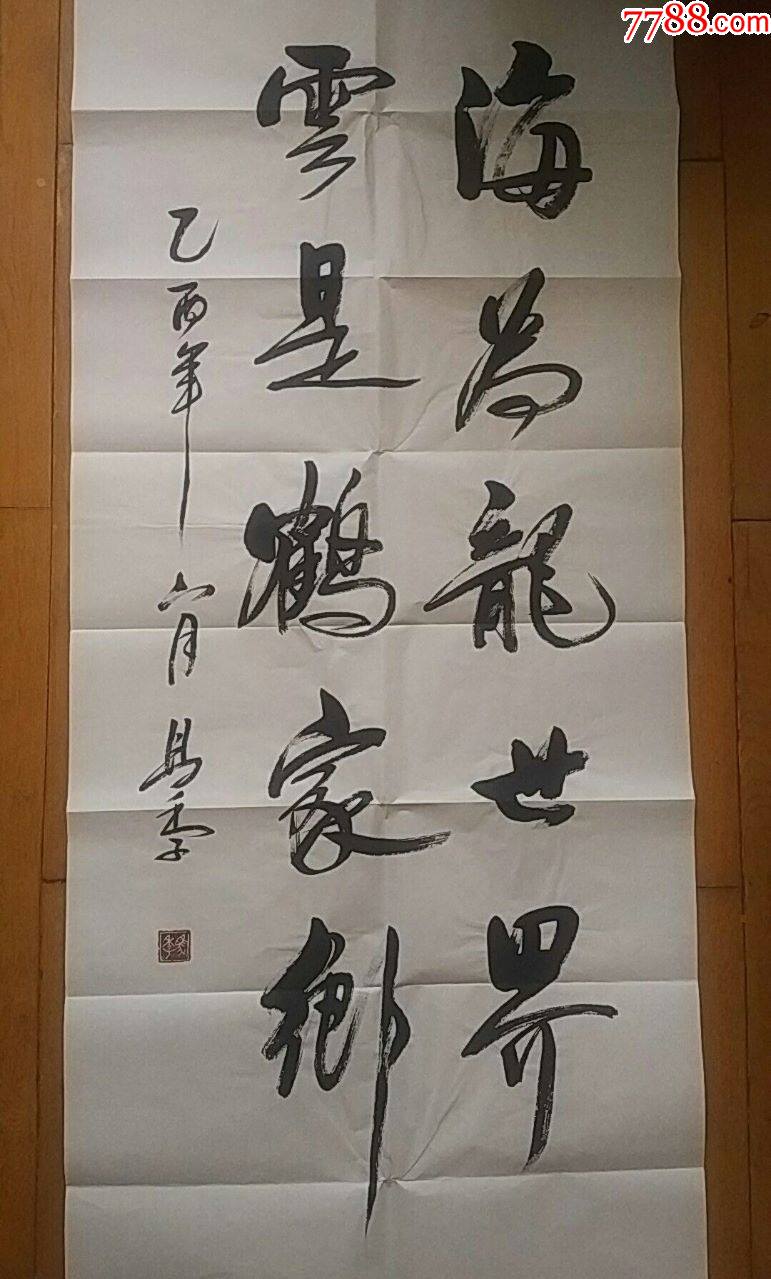 7788.com
海为龍世界
雲是鶴家鄉
乙酉年六月